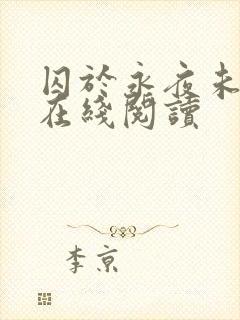 囚於永夜未
在綫閱讀
李京